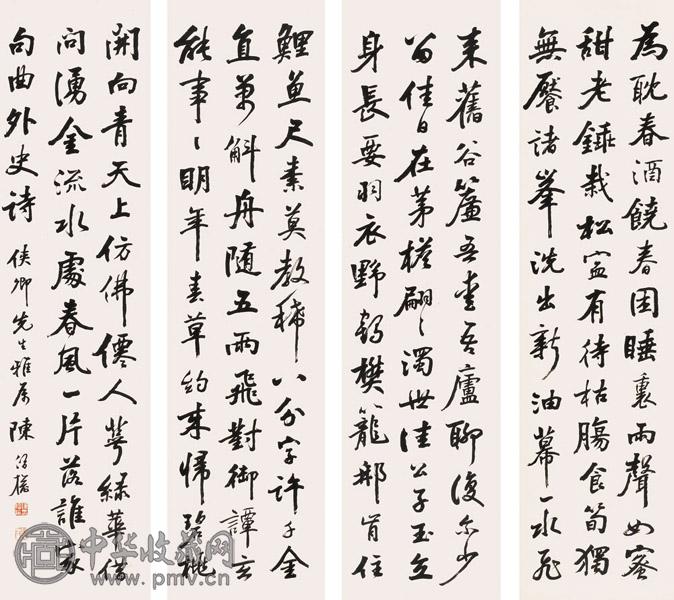 為耽春酒饒春困睡裏雨聲如蜜
甜老鋒栽松宜有待枯腸食筍獨
無饜諸峯洗出新油幕一水飛
來舊谷簾吾愛吾廬聊復尔少
留佳日在茅檐翩〻濁世佳公子玉立
身長要羽衣野鶴樊籠那肯住
鯉魚尺素莫教稀八分字許千金
直萬斛舟隨五兩飛對御譚玄
能事〻明年春草約來歸碧桃
開向青天上仿佛僊人萼綠華借
問湧金流水處春風一片落誰家
句曲外史詩 侯卿先生雅屬 陳
中华收藏网
www.pmv.cn